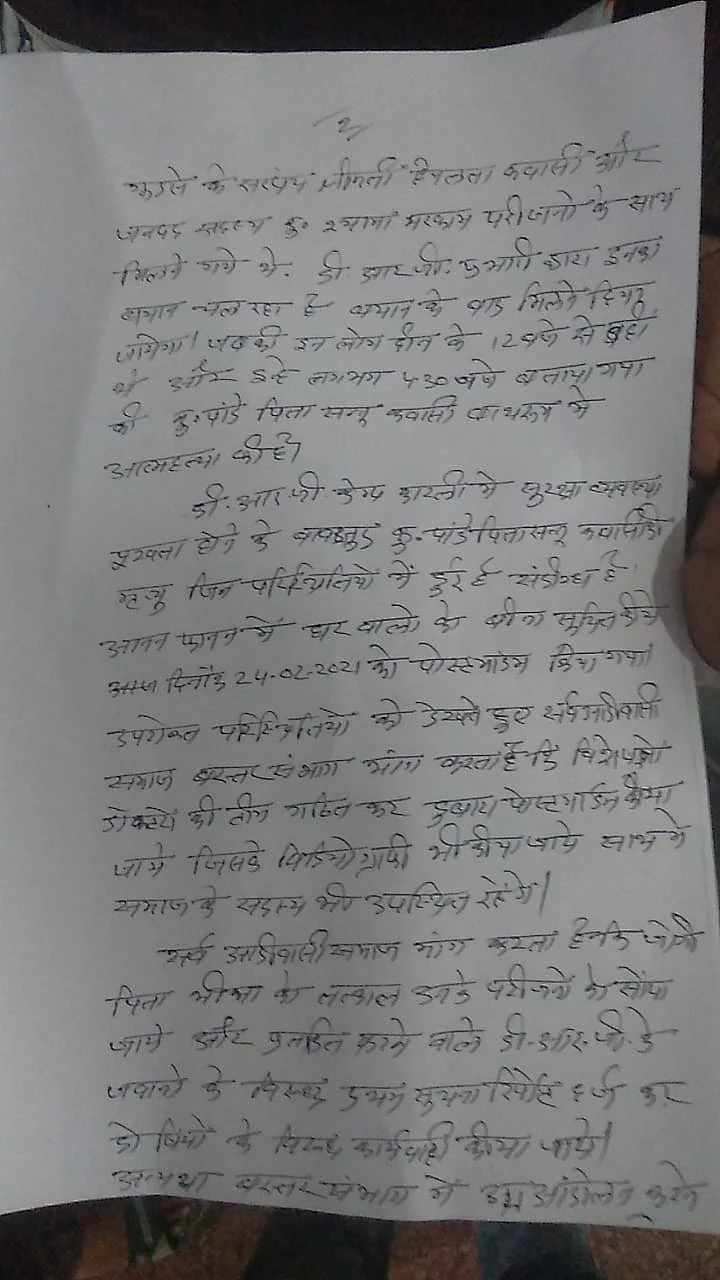 2
के सरपंच श्रीमती हेमलता कवासी और
जनपद सदस्य कु. श्यामा मरकाम परीजनो के साथ
मिलने गये थे. डी. आर. जी. प्रभारी द्वारा इनका
बयान चल रहा है बयान के बाद मिलने दिया
जायेगा। जबकी इन लोग दीन के 12 बजे से वहाँ
थे और इन्हे लगभग 4:30 बजे बताया गया
की कु. पांडे पिता सन्नू कवासी बाथरूम मे
आत्महत्या की है।
डी. आर. जी. केम्प कारली मे सुरक्षा व्यवस्था
पुख्ता होने के बावजूद कु. पांडे पिता सन्नू कवासी की
मृत्यु जिन परिस्थितियों में हुई है संदीग्ध है।
आनन फानन में घर वालो को बीना सूचित कीये
आज दिनाँक 24-02-2021 को पोस्टमार्डम किया गया।
उपरोक्त परिस्थितियो को देखते हुए सर्व आदीवासी
समाज बस्तर संभाग मांग करता है कि विशेषज्ञो
डॉक्टरो की टीम गठित कर दुबारा पोस्टमार्डम कीया
जाये जिसके विडियोग्राफी भी कीया जाये साथ मे
समाज के सदस्य भी उपस्थित रहेंगे।
सर्व आदीवासी समाज मांग करता है कि जोगी
पिता भीमा को तत्काल उनके परीजनो को सौंपा
जाये और प्रताडित करने वाले डी. आर. जी. के
जवानो के विरूद्ध प्रथम सुचना रिपोर्ट दर्ज कर
दोषियों के विरूद्ध कार्यवाही कीया जाये।
अन्यथा बस्तर संभाग मे उग्र आंदोलन करने